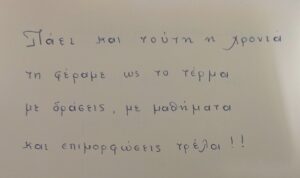 Πάει και τούτη η χρονιά
τη φέραμε ως το τέρμα
με δράσεις, με μαθήματα
και επιμορφώσεις τρέλα!!